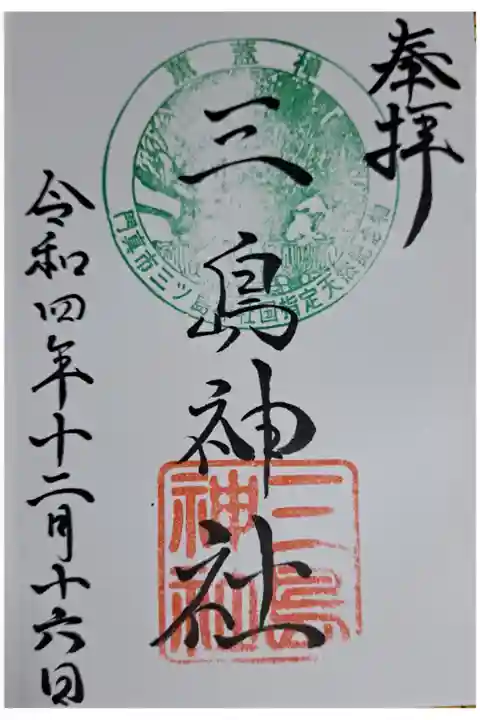 奉拝
薫蓋樟
三島神社
門真市三ツ島 社国指定天然記念物
三島
神社
令和四年十二月十六日